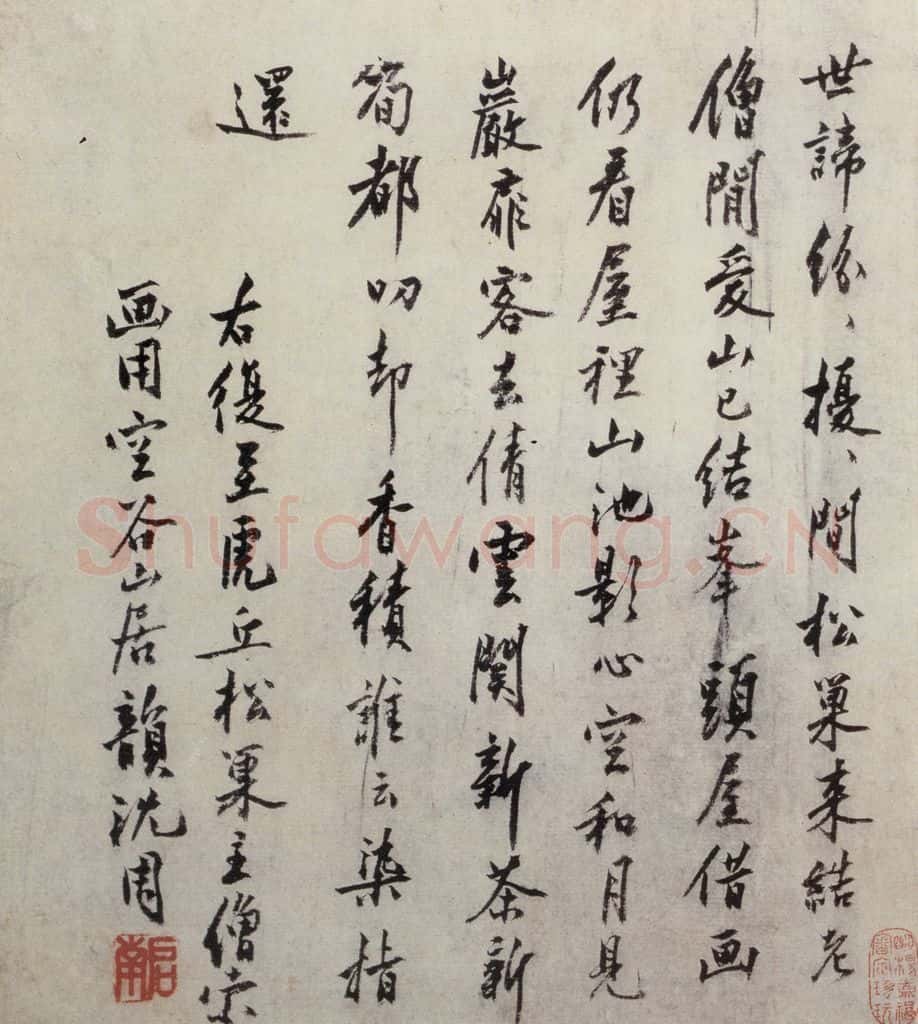 世諦紛、擾、間松巢来結老
僧閒愛山已結峯頭屋借画
仍看屋裡山池影心空和月見
巖扉客去倩雲関新茶新
筍都叨却香積誰云染指
還 右復至虎丘松巢主僧索
画用空谷山居韻沈周
啟南
Shufawang.CN